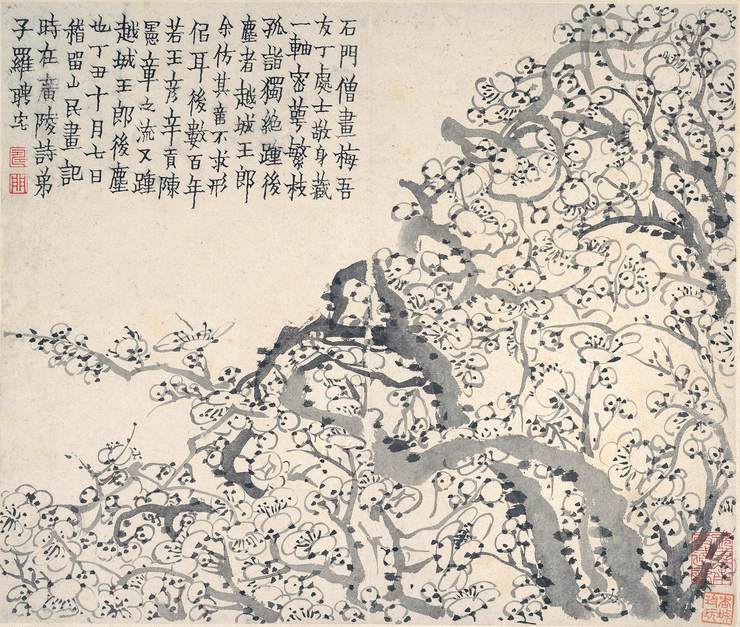 石門僧畫梅吾
友丁處士敬身藏
一軸密蕚繁枝
孤詣獨絶踵後
塵者越城王郎
余仿其意不求形
侣耳後數百年
若王彥辛貢陳
憲章之流又踵
越城王郎後塵
也丁丑十月七日
稽留山民畫記
時在廣陵詩弟
子羅聘